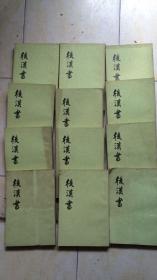 後漢書
後漢書
後漢書
後漢書
後漢書
後漢書
後漢書
後漢書
後漢書
後漢書
後漢書
後漢書